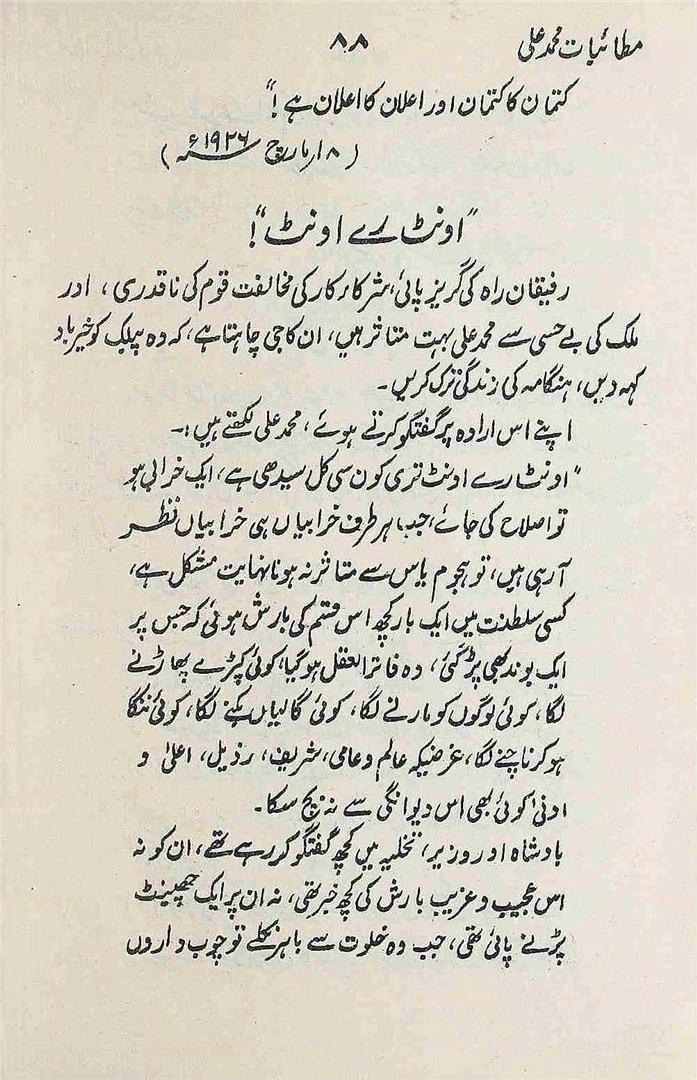 مطائبات محمد علی
۸۸
کتمان کا کتمان اور اعلان کا اعلان ہے !"
(۱۸ مارچ ۱۹۲۶ء)
"اونٹ رے اونٹ"!
رفیقان راہ کی گریز پائی، شرکاء کار کی مخالفت قوم کی ناقدری، اور
ملک کی بے حسی سے محمد علی بہت متاثر ہیں، ان کا جی چاہتا ہے، کہ وہ پبلک کو خیر باد
کہہ دیں، ہنگامہ کی زندگی ترک کریں۔
اپنے اس ارادہ پر گفتگو کرتے ہوئے، محمد علی لکھتے ہیں:۔
"اونٹ رے اونٹ تری کون سی کل سیدھی ہے، ایک خرابی ہو
تو اصلاح کی جائے، جب ہر طرف خرابیاں ہی خرابیاں نظر
آرہی ہیں، تو ہجوم یاس سے متاثر نہ ہونا نہایت مشکل ہے،
کسی سلطنت میں ایک بار کچھ اس قسم کی بارش ہوئی کہ جس پر
ایک بوند بھی پڑ گئی، وہ فاتر العقل ہوگیا، کوئی کپڑے پھاڑنے
لگا، کوئی لوگوں کو مارنے لگا، کوئی گالیاں بکنے لگا، کوئی ننگا
ہو کر ناچنے لگا، غرضیکہ عالم و عامی، شریف، رذیل، اعلیٰ و
ادنیٰ کوئی بھی اس دیوانگی سے نہ بچ سکا۔
بادشاہ اور وزیر، تخلیہ میں کچھ گفتگو کر رہے تھے، ان کو نہ
اس عجیب و غریب بارش کی کچھ خبر تھی، نہ ان پر ایک چھینٹ
پڑنے پائی تھی، جب وہ خلوت سے باہر نکلے تو چوب داروں